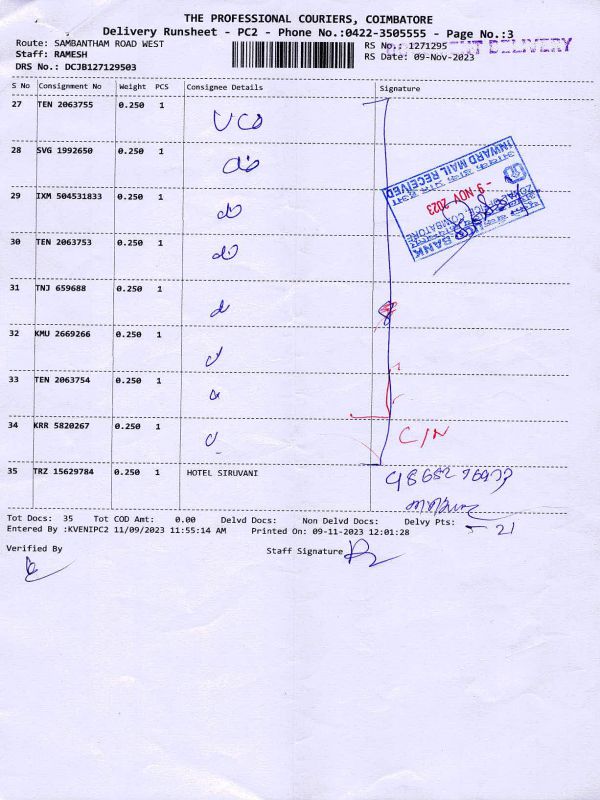 THE PROFESSIONAL COURIERS, COIMBATORE
Delivery Runsheet - PC2 - Phone No.:0422-3505555 - Page No.:3
Route: SAMBANTHAM ROAD WEST RS No.: 1271295 DELIVERY
Staff: RAMESH RS Date: 09-Nov-2023
DRS No.: DCJB127129503
S No Consignment No Weight PCS Consignee Details Signature
27 TEN 2063755 0.250 1 UCO
28 SVG 1992650 0.250 1 do
29 IXM 504531833 0.250 1 do
30 TEN 2063753 0.250 1 do
31 TNJ 659688 0.250 1
32 KMU 2669266 0.250 1
33 TEN 2063754 0.250 1
34 KRR 5820267 0.250 1
INWARD MAIL RECEIVED
- 9 NOV 2023
COIMBATORE
BANK
C/N
35 TRZ 15629784 0.250 1 HOTEL SIRUVANI
Tot Docs: 35 Tot COD Amt: 0.00 Delvd Docs: Non Delvd Docs: Delvy Pts: 21
Entered By :KVENIPC2 11/09/2023 11:55:14 AM Printed On: 09-11-2023 12:01:28
Verified By Staff Signature